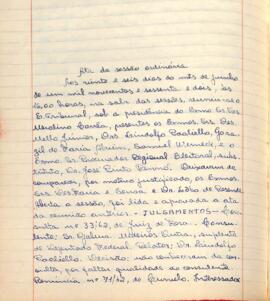 Ata da sessão ordinária
Aos vinte e seis dias do mês de junho
de um mil novecentos e sessenta e dois, às
horas, na sala das sessões, reuniu-se o
E. Tribunal, sob a presidência do Exmo. Sr. Des.
presentes os Exmos. Srs. Des.
Mello Júnior, Drs. Lindolfo Paoliello,
de Faria Alvim, Samuel Werneck, e o
Exmo. Sr. Procurador Regional Eleitoral, subs-
tituto, Dr. José Pinto. Deixaram de
comparecer, por motivo justificado, os Exmos.
Srs. Des. Faria e Sousa e Dr. Lydio de
Aberta a sessão, foi lida e aprovada a ata
da reunião anterior - JULGAMENTOS - Con-
sulta nº 33/62, de Juiz de Fora. Consu-
lente: Dr.
de Deputado Federal. Relator: Dr. Lindolfo
Paoliello. Decisão: não conheceram da con-
sulta, por faltar qualidade ao consulente.
nº 77/62, de Curvelo. Interessados